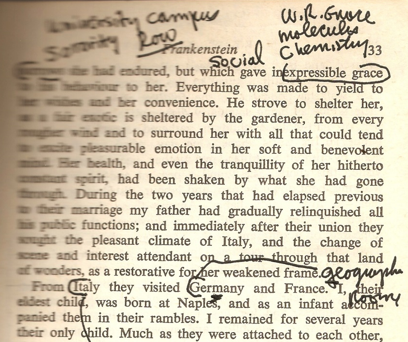 University campus
Sorority Row
W.R. Grace
molecular
Chemistry
Frankenstein 33
social
she had endured, but which gave inexpressible grace
behaviour to her. Everything was made to yield to
her wishes and her convenience. He strove to shelter her,
as a fair exotic is sheltered by the gardener, from every
rougher wind and to surround her with all that could tend
to excite pleasurable emotion in her soft and benevolent
mind. Her health, and even the tranquillity of her hitherto
constant spirit, had been shaken by what she had gone
through. During the two years that had elapsed previous
to their marriage my father had gradually relinquished all
his public functions; and immediately after their union they
sought the pleasant climate of Italy, and the change of
scene and interest attendant on a tour through that land
of wonders, as a restorative for her weakened frame.
From Italy they visited Germany and France. I, their
eldest child, was born at Naples, and as an infant accom-
panied them in their rambles. I remained for several years
their only child. Much as they were attached to each other,